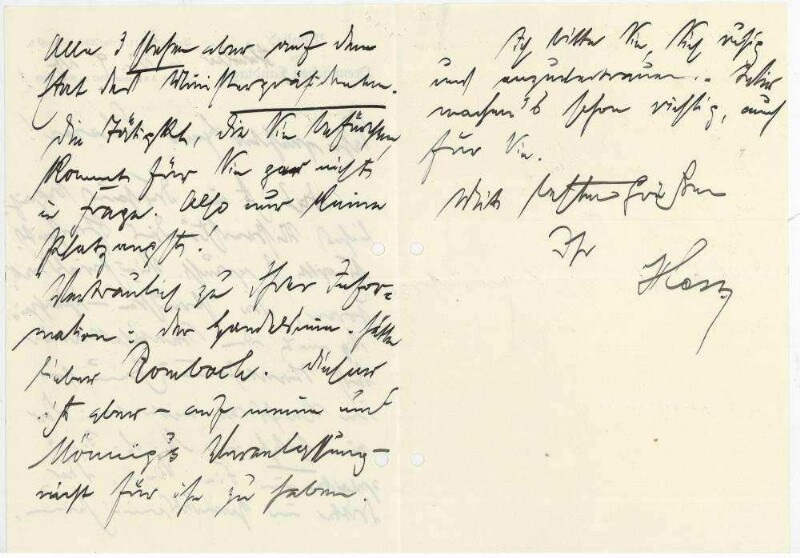 Alle 3 stehen aber auf dem
Etat des Ministerpräsidenten.
Die Tätigkt, die Sie befürchten,
kommt für Sie gar nicht
in Frage. Also nur keine
Platzangst!
Vertraulich zu Ihrer Infor=
mation: der Handelsmin. hätte
lieber Rombach. Dieser
ist aber – auf meine und
Mönnig's Veranlassung –
nicht für ihn zu haben.
Ich bitte Sie, sich ruhig
uns anzuvertrauen. Wir
machen's schon richtig, auch
für Sie.
Mit besten Grüßen
Ihr